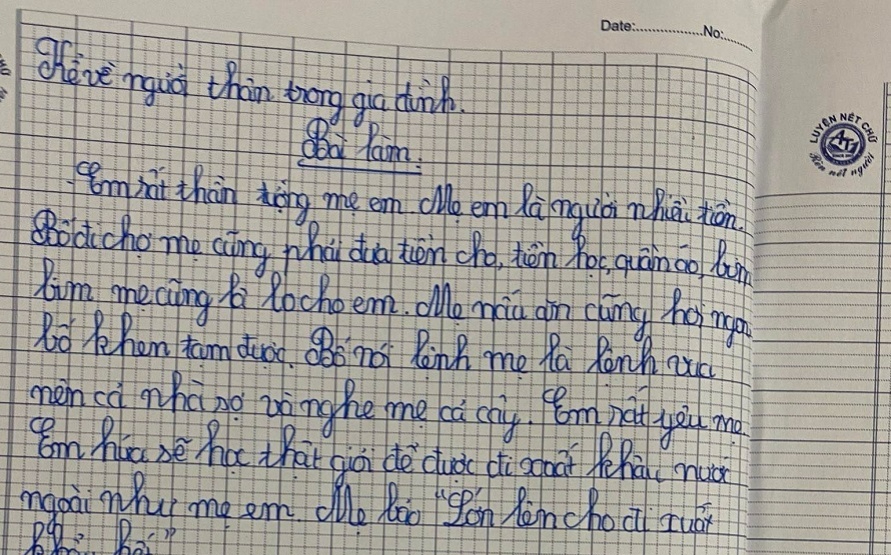 Date:..................No:.......
Kể về người thân trong gia đình.
Bài làm.
LUYỆN NÉT CHỮ
Rèn nết người
Em rất thần tượng mẹ em. Mẹ em là người nhiều tiền.
Bố đi chợ mẹ cũng phải đưa tiền cho, tiền học, quần áo, bim
bim mẹ cũng là lo cho em. Mẹ nấu ăn cũng hơi ngon
bố khen tạm được. Bố nói lệnh mẹ là lệnh vua
nên cả nhà sợ và nghe mẹ cả cây. Em rất yêu mẹ.
Em hứa sẽ học thật giỏi để được đi xuất khẩu nước
ngoài như mẹ em. Mẹ bảo "Lớn lên cho đi xuất